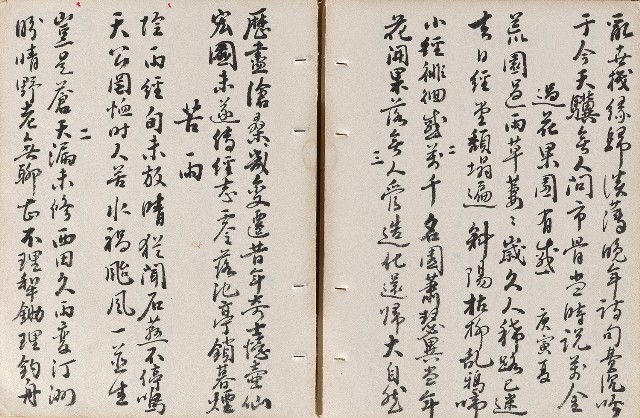 世機緣歸淡薄晚年詩句沉吟
于今天驥無人問市骨當時說萬金
過花果園有感 庚寅夏
荒園過雨草萋〻歲久人稀路已迷
昔日經堂頹塌遍斜陽枯柳亂鴉啼
二
小徑徘徊感萬千名園蕭瑟異當年
花開果落無人管造化還歸大自然
三
歷盡滄桑幾變遷昔年奇士憶壺仙
宏圖未遂傳經志零落池亭鎖暮煙
苦雨
陰雨經旬未放晴猶聞石燕不停鳴
天公罔恤時人苦水禍颱風一並生
二
豈是蒼天漏未修西田久雨變汀洲
盼晴野老無聊甚不理犁鋤理釣舟